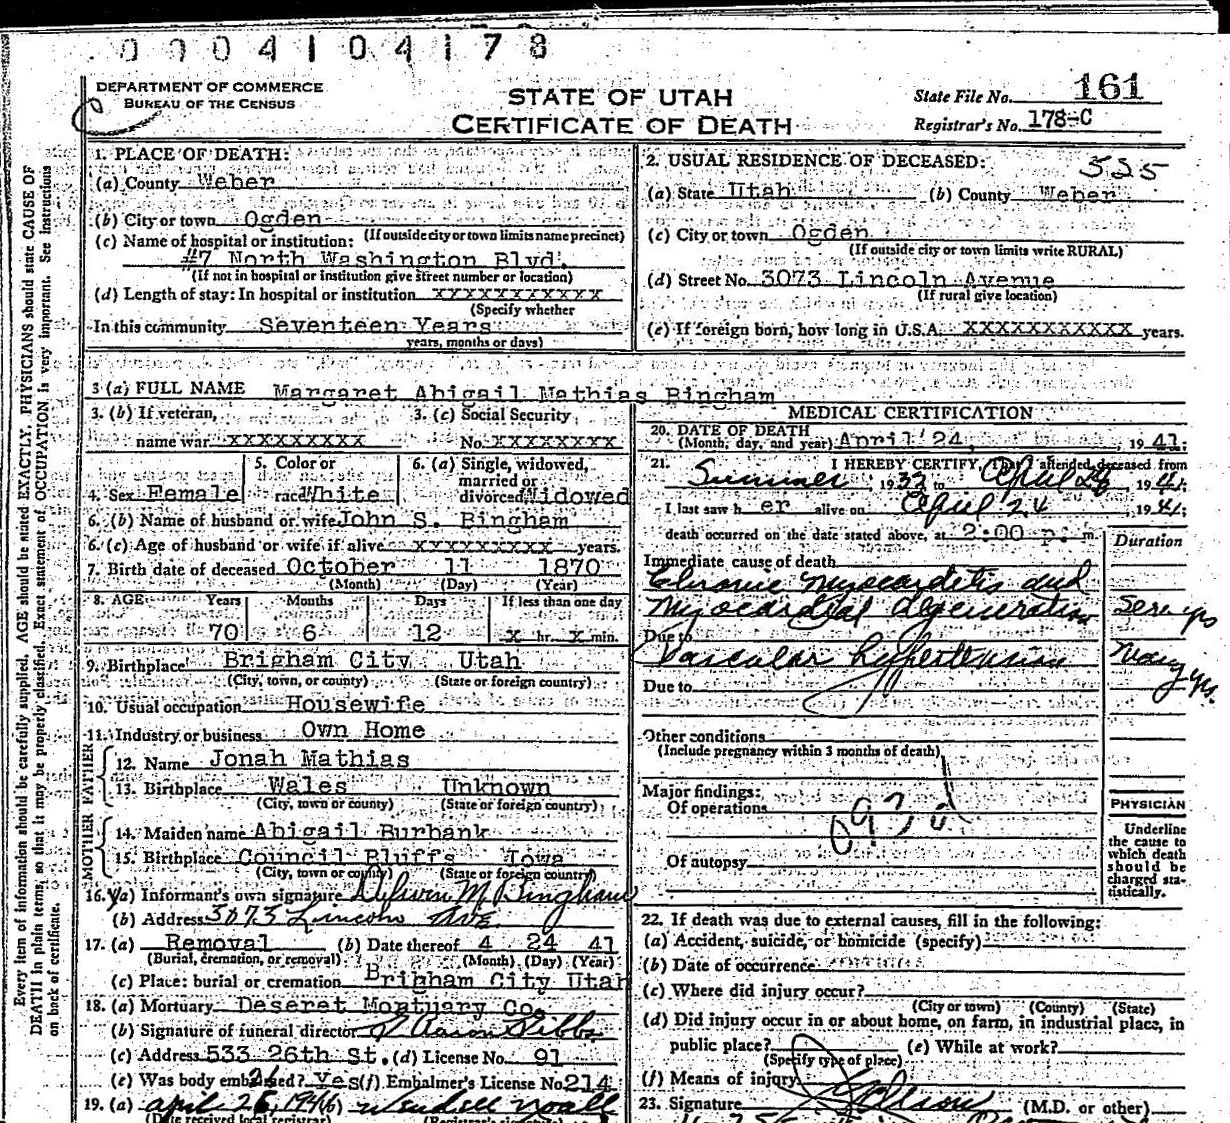 0004104178
DEPARTMENT OF COMMERCE
BUREAU OF THE CENSUS
STATE OF UTAH
CERTIFICATE OF DEATH
State File No. 161
Registrar's No. 178-C
Every item of information should be carefully supplied. AGE should be stated EXACTLY. PHYSICIANS should state CAUSE OF
DEATH in plain terms, so that it may be properly classified. Exact statement of OCCUPATION is very important. See Instructions
on back of certificate.
1. PLACE OF DEATH:
(a) County Weber
(b) City or town Ogden
(If outside city or town limits name precinct)
(c) Name of hospital or institution:
#7 North Washington Blvd.
(If not in hospital or institution give street number or location)
(d) Length of stay: In hospital or institution xxxxxxxxxxx
(Specify whether
In this community Seventeen Years
years, months or days)
2. USUAL RESIDENCE OF DECEASED: 525
(a) State Utah (b) County Weber
(c) City or town Ogden
(If outside city or town limits write RURAL)
(d) Street No. 3073 Lincoln Avenue
(If rural give location)
(e) If foreign born, how long in U.S.A. xxxxxxxxxxx years.
3 (a) FULL NAME Margaret Abigail Mathias Bingham
3. (b) If veteran,
name war xxxxxxxxx
3. (c) Social Security
No. xxxxxxxx
4. Sex Female
5. Color or
race White
6. (a) Single, widowed,
married or
divorced Widowed
6. (b) Name of husband or wife John S. Bingham
6. (c) Age of husband or wife if alive xxxxxxxxx years.
7. Birth date of deceased October 11 1870
(Month) (Day) (Year)
8. AGE Years Months Days If less than one day
70 6 12 x hr. x min.
9. Birthplace Brigham City Utah
(City, town, or county) (State or foreign country)
10. Usual occupation Housewife
11. Industry or business Own Home
FATHER
12. Name Jonah Mathias
13. Birthplace Wales Unknown
(City, town or county) (State or foreign country)
MOTHER
14. Maiden name Abigail Burbank
15. Birthplace Council Bluffs Iowa
(City, town or county) (State or foreign country)
16. (a) Informant's own signature M. Bingham
(b) Address 3073 Lincoln Ave.
17. (a) Removal (b) Date thereof 4 24 41
(Burial, cremation, or removal) (Month) (Day) (Year)
(c) Place: burial or cremation Brigham City Utah
18. (a) Mortuary Deseret Mortuary Co.
(b) Signature of funeral director Aaron Gibbs
(c) Address 533 26th St. (d) License No. 91
(e) Was body embalmed? Yes (f) Embalmer's License No. 214
19. (a) april 26, 194 (b) Wendell Noall
(Date received local registrar) (Registrar's signature)
MEDICAL CERTIFICATION
20. DATE OF DEATH
(Month, day, and year) April 24, 1941;
21. I HEREBY CERTIFY, That I attended deceased from
Summer 1932 to April 24 1941;
I last saw her alive on April 24, 1941;
death occurred on the date stated above, at 2:00 p. m.
Duration
Immediate cause of death
Chronic myocarditis and
Myocardial degeneration yrs
Due to
Vascular hypertension Many yrs.
Due to
Other conditions
(Include pregnancy within 3 months of death)
Major findings:
Of operations
093d
Of autopsy
PHYSICIAN
Underline
the cause to
which death
should be
charged sta-
tistically.
22. If death was due to external causes, fill in the following:
(a) Accident, suicide, or homicide (specify)
(b) Date of occurrence
(c) Where did injury occur?
(City or town) (County) (State)
(d) Did injury occur in or about home, on farm, in industrial place, in
public place? (e) While at work?
(Specify type of place)
(f) Means of injury
23. Signature (M.D. or other)